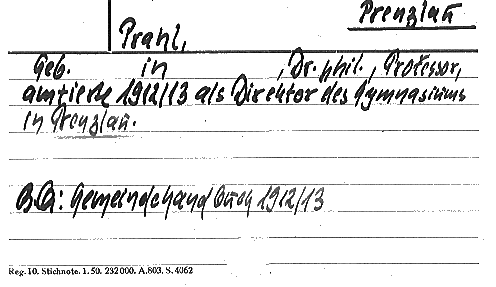 Prenzlau
Prahl,
Geb. in , Dr. phil., Professor,
amtierte 1912/13 als Direktor des Gymnasiums
in Prenzlau.
B.Q: Gemeindehandbuch 1912/13
Reg. 10. Stichnote. 1. 50. 232 000. A.803. S. 4062